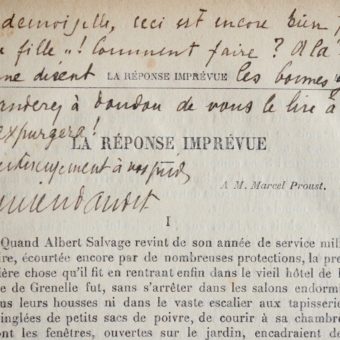 demoiselle, ceci est encore bien p
a fille"! Comment faire ? A la
ne disent LA RÉPONSE IMPRÉVUE les bonnes
anderez à Doudou de vous le lire à
expurgera!
LA RÉPONSE IMPRÉVUE
à vos pieds
A M. Marcel Proust.
I
Quand Albert Salvage revint de son année de service mil
ire, écourtée encore par de nombreuses protections, la pre
ière chose qu'il fit en rentrant enfin dans le vieil hôtel de l
e de Grenelle fut, sans s'arrêter dans les salons endorm
us leurs housses ni dans le vaste escalier aux tapisserie
inglées de petits sacs de poivre, de courir à sa chambre
ont les fenêtres, ouvertes sur le jardin, encadraient de